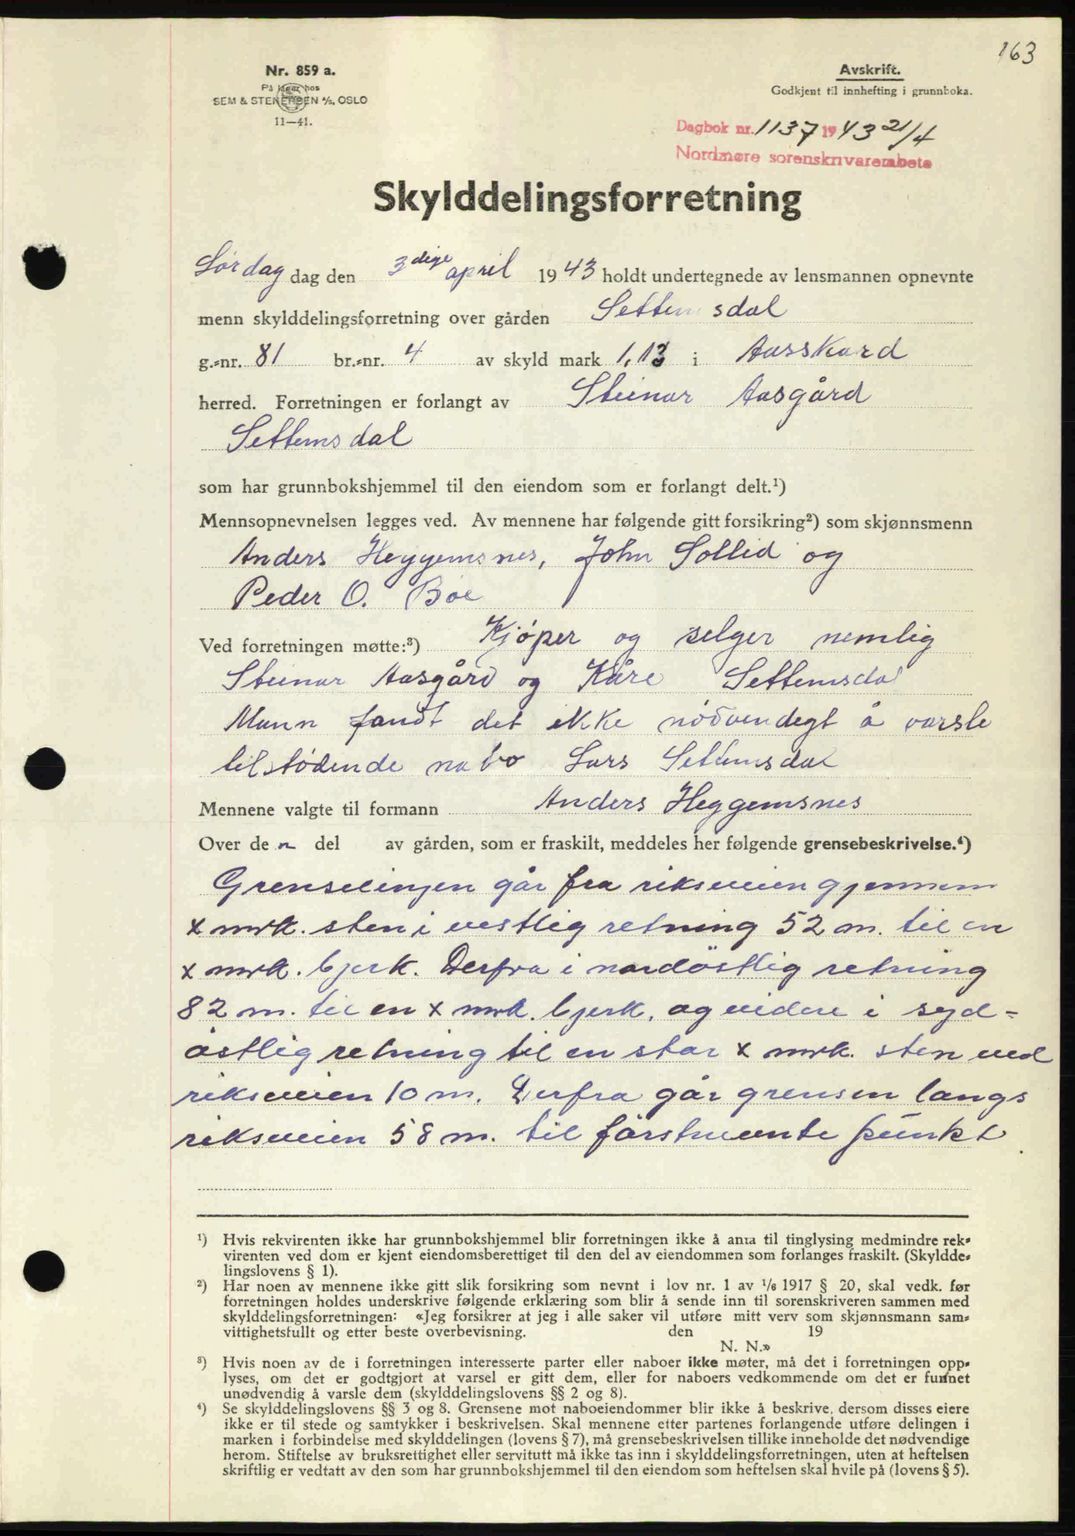 163
Nr. 859 a.
På lager hos
SEM & STENERSEN A/S, OSLO
11—41.
Avskrift.
Godkjent til innhefting i grunnboka.
Dagbok nr. 1137 1943 21/4
Nordmøre sorenskrivarembete
Skylddelingsforretning
Lördag dag den 3dige april 1943 holdt undertegnede av lensmannen opnevnte
menn skylddelingsforretning over gården Settemsdal
g.-nr. 81 br.-nr. 4 av skyld mark 1,13 i Aasskard
herred. Forretningen er forlangt av Steinar Aasgård
Settemsdal
som har grunnbokshjemmel til den eiendom som er forlangt delt.¹)
Mennsopnevnelsen legges ved. Av mennene har følgende gitt forsikring²) som skjønnsmenn
Anders Heggemsnes, John Sollid og
Peder O. Böe
Ved forretningen møtte:³) Kjöper og selger nemlig
Steinar Aasgård og Kåre Settemsdal
Mann fandt det ikke nödvendegt å varsle
tilstödende nabo Lars Settemsdal
Mennene valgte til formann Anders Heggemsnes
Over den del av gården, som er fraskilt, meddeles her følgende grensebeskrivelse.⁴)
Grenselinjen går fra riksveien gjennem
x mrk. sten i vestlig retning 52 m. til en
x mrk. bjerk. Derfra i nordöstlig retning
82 m. til en x mrk. bjerk, og videre i syd-
östlig retning til en stor x mrk. sten ved
riksveien 10 m. Derfra går grensen langs
riksveien 58 m. til förstnevnte punkt
¹) Hvis rekvirenten ikke har grunnbokshjemmel blir forretningen ikke å anta til tinglysing medmindre rek-
virenten ved dom er kjent eiendomsberettiget til den del av eiendommen som forlanges fraskilt. (Skyldde-
lingslovens § 1).
²) Har noen av mennene ikke gitt slik forsikring som nevnt i lov nr. 1 av 1/6 1917 § 20, skal vedk. før
forretningen holdes underskrive følgende erklæring som blir å sende inn til sorenskriveren sammen med
skylddelingsforretningen: «Jeg forsikrer at jeg i alle saker vil utføre mitt verv som skjønnsmann sam-
vittighetsfullt og etter beste overbevisning. den 19
N. N.»
³) Hvis noen av de i forretningen interesserte parter eller naboer ikke møter, må det i forretningen opp-
lyses, om det er godtgjort at varsel er gitt dem, eller for naboers vedkommende om det er funnet
unødvendig å varsle dem (skylddelingslovens §§ 2 og 8).
⁴) Se skylddelingslovens §§ 3 og 8. Grensene mot naboeiendommer blir ikke å beskrive, dersom disses eiere
ikke er til stede og samtykker i beskrivelsen. Skal mennene etter partenes forlangende utføre delingen i
marken i forbindelse med skylddelingen (lovens § 7), må grensebeskrivelsen tillike inneholde det nødvendige
herom. Stiftelse av bruksrettighet eller servitutt må ikke tas inn i skylddelingsforretningen, uten at heftelsen
skriftlig er vedtatt av den som har grunnbokshjemmel til den eiendom som heftelsen skal hvile på (lovens § 5).